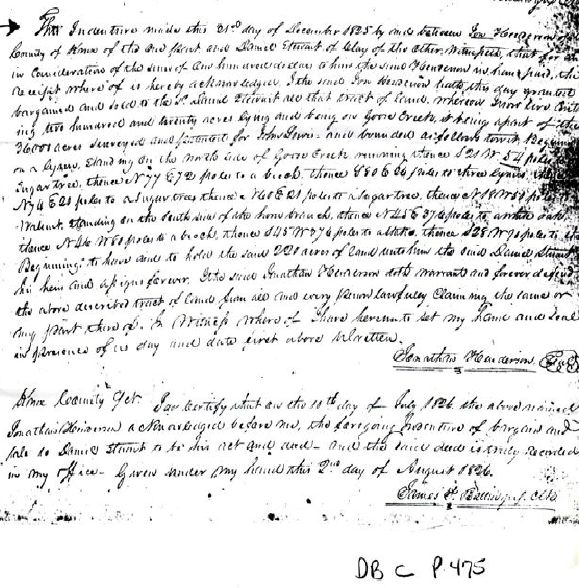 This Indenture made this 31st day of December 1825 by and between Jon Henderson of
County of Knox of the one part and Daniel Stewart of Clay of the other, Witnesseth, that for and
in Consideration of the sum of One hundred dollars to him the said Henderson in hand paid, the
receipt where of is hereby acknowledged. I the said Jon Henderson hath this day granted
bargained and sold to the Sd. Daniel Stewart all that tract of Land, whereon
ing two hundred and twenty acres lying and being on Goose Creek, & being apart of the
36000 acres surveyed and patented for John and bounded as follows towit, Beginning
on a Standing on the north side of Goose Creek running thence S21 W 54 poles
Sugartree, thence N 77 E 72 poles to a beech, thence E 86 poles to three Lynns, thence
N74 E 28 poles to a Sugar trees thence N60 E 21 poles to a Sugartree, thence
Walnut. Standing on the South side of the horn branch, thence N45 E 376 poles to a white oak
thence N 46 W 80 poles to a beech, thence S45 W 374 poles to a Stake, thence S28 W 90 poles to the
Beginning; to have and to hold the said 220 acres of land unto him the said Daniel Stewart
his heirs and assigns forever. I the said Jonathan Henderson doth warrant and forever defend
the above described tract of Land from all and every person lawfully Claiming the same or
any part thereof. In Witness where of I have hereunto set my hand and Seal
in presence of us day and date first above Written.
Jonathan Henderson
Knox County Sct. I do Certify that on the 10th day of July 1826. the above named
Jonathan Henderson acknowledged before me, the foregoing indenture of bargain and
sale to Daniel Stewart to be his act and deed - and the said deed is truly recorded
in my office - Given under my hand this 2nd day of August 1826.
James
DB C P. 475